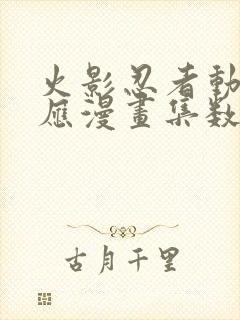 火影忍者動
應漫畫集数
古月千里